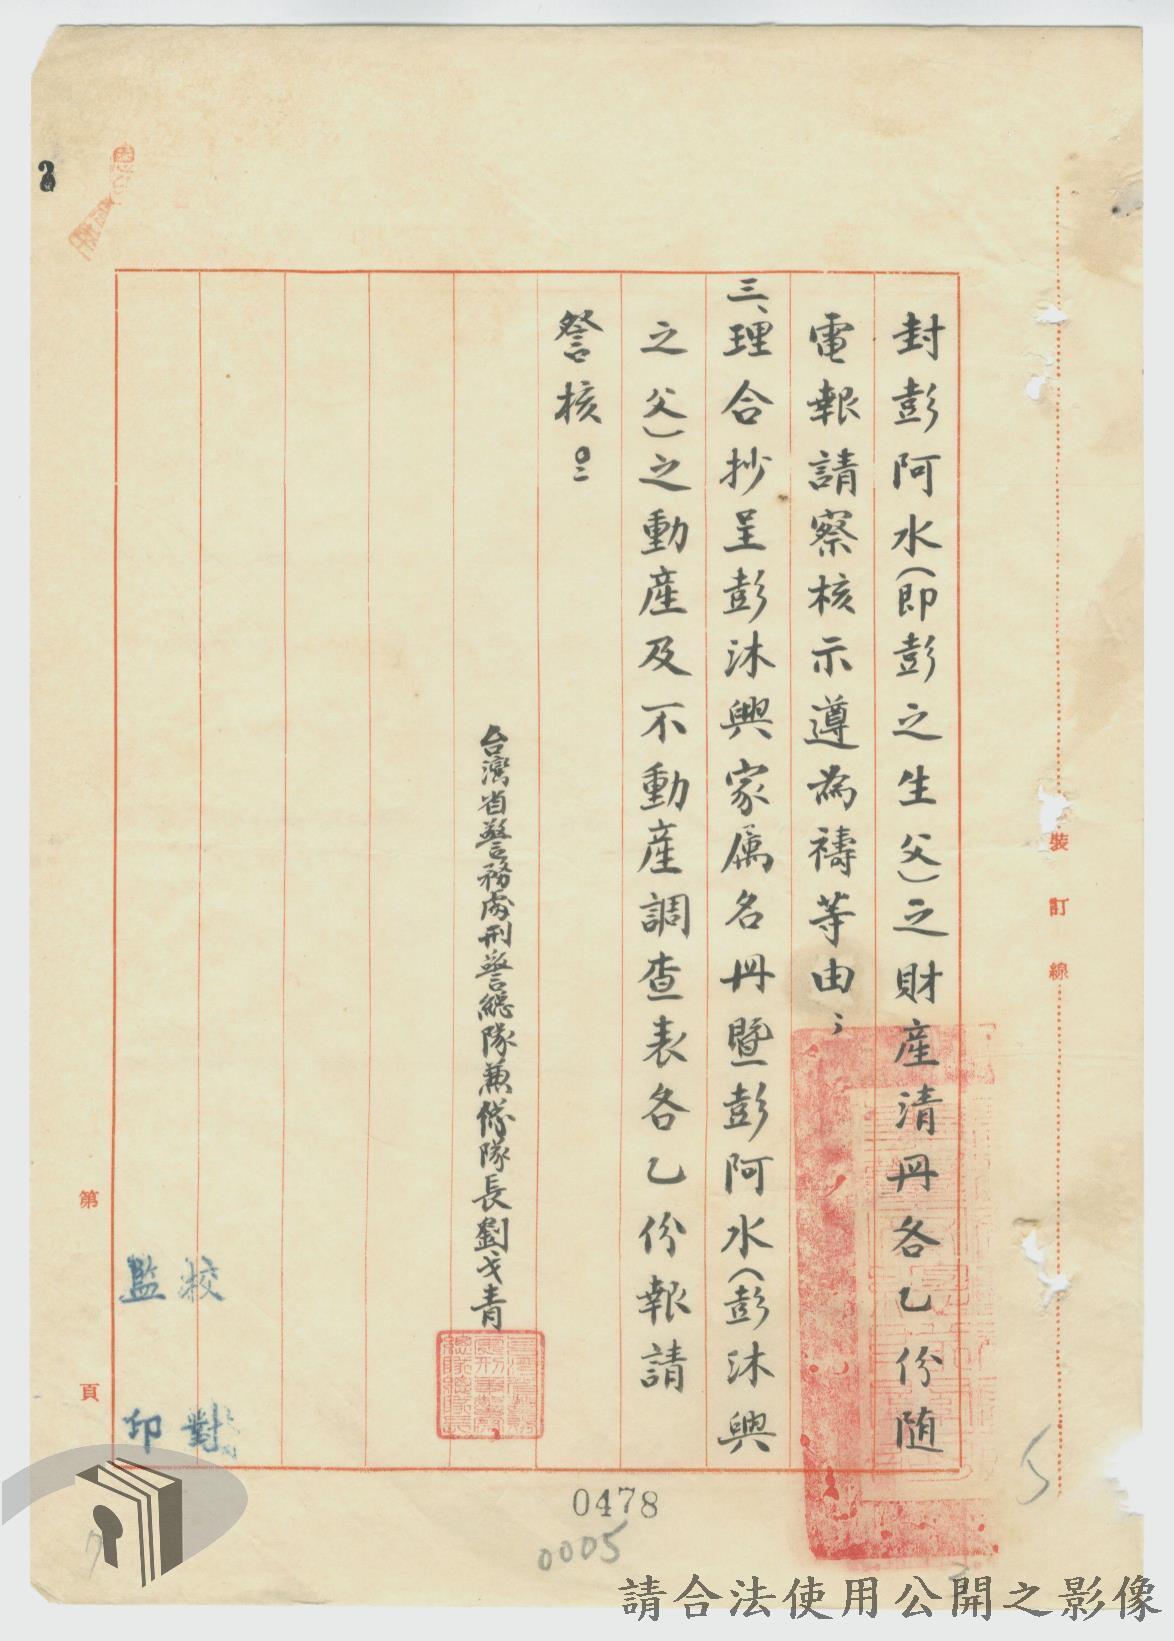 封彭阿水(即彭之生父)之財產清冊各乙份随
電報請察核示遵為禱等由;
三、理合抄呈彭沐興家属名冊暨彭阿水(彭沐興
之父)之動產及不動產調查表各乙份報請
詧核。
台灣省警務處刑警總隊兼總隊長劉戈青
裝訂線
校對
監印
第頁
0478
0005
請合法使用公開之影像